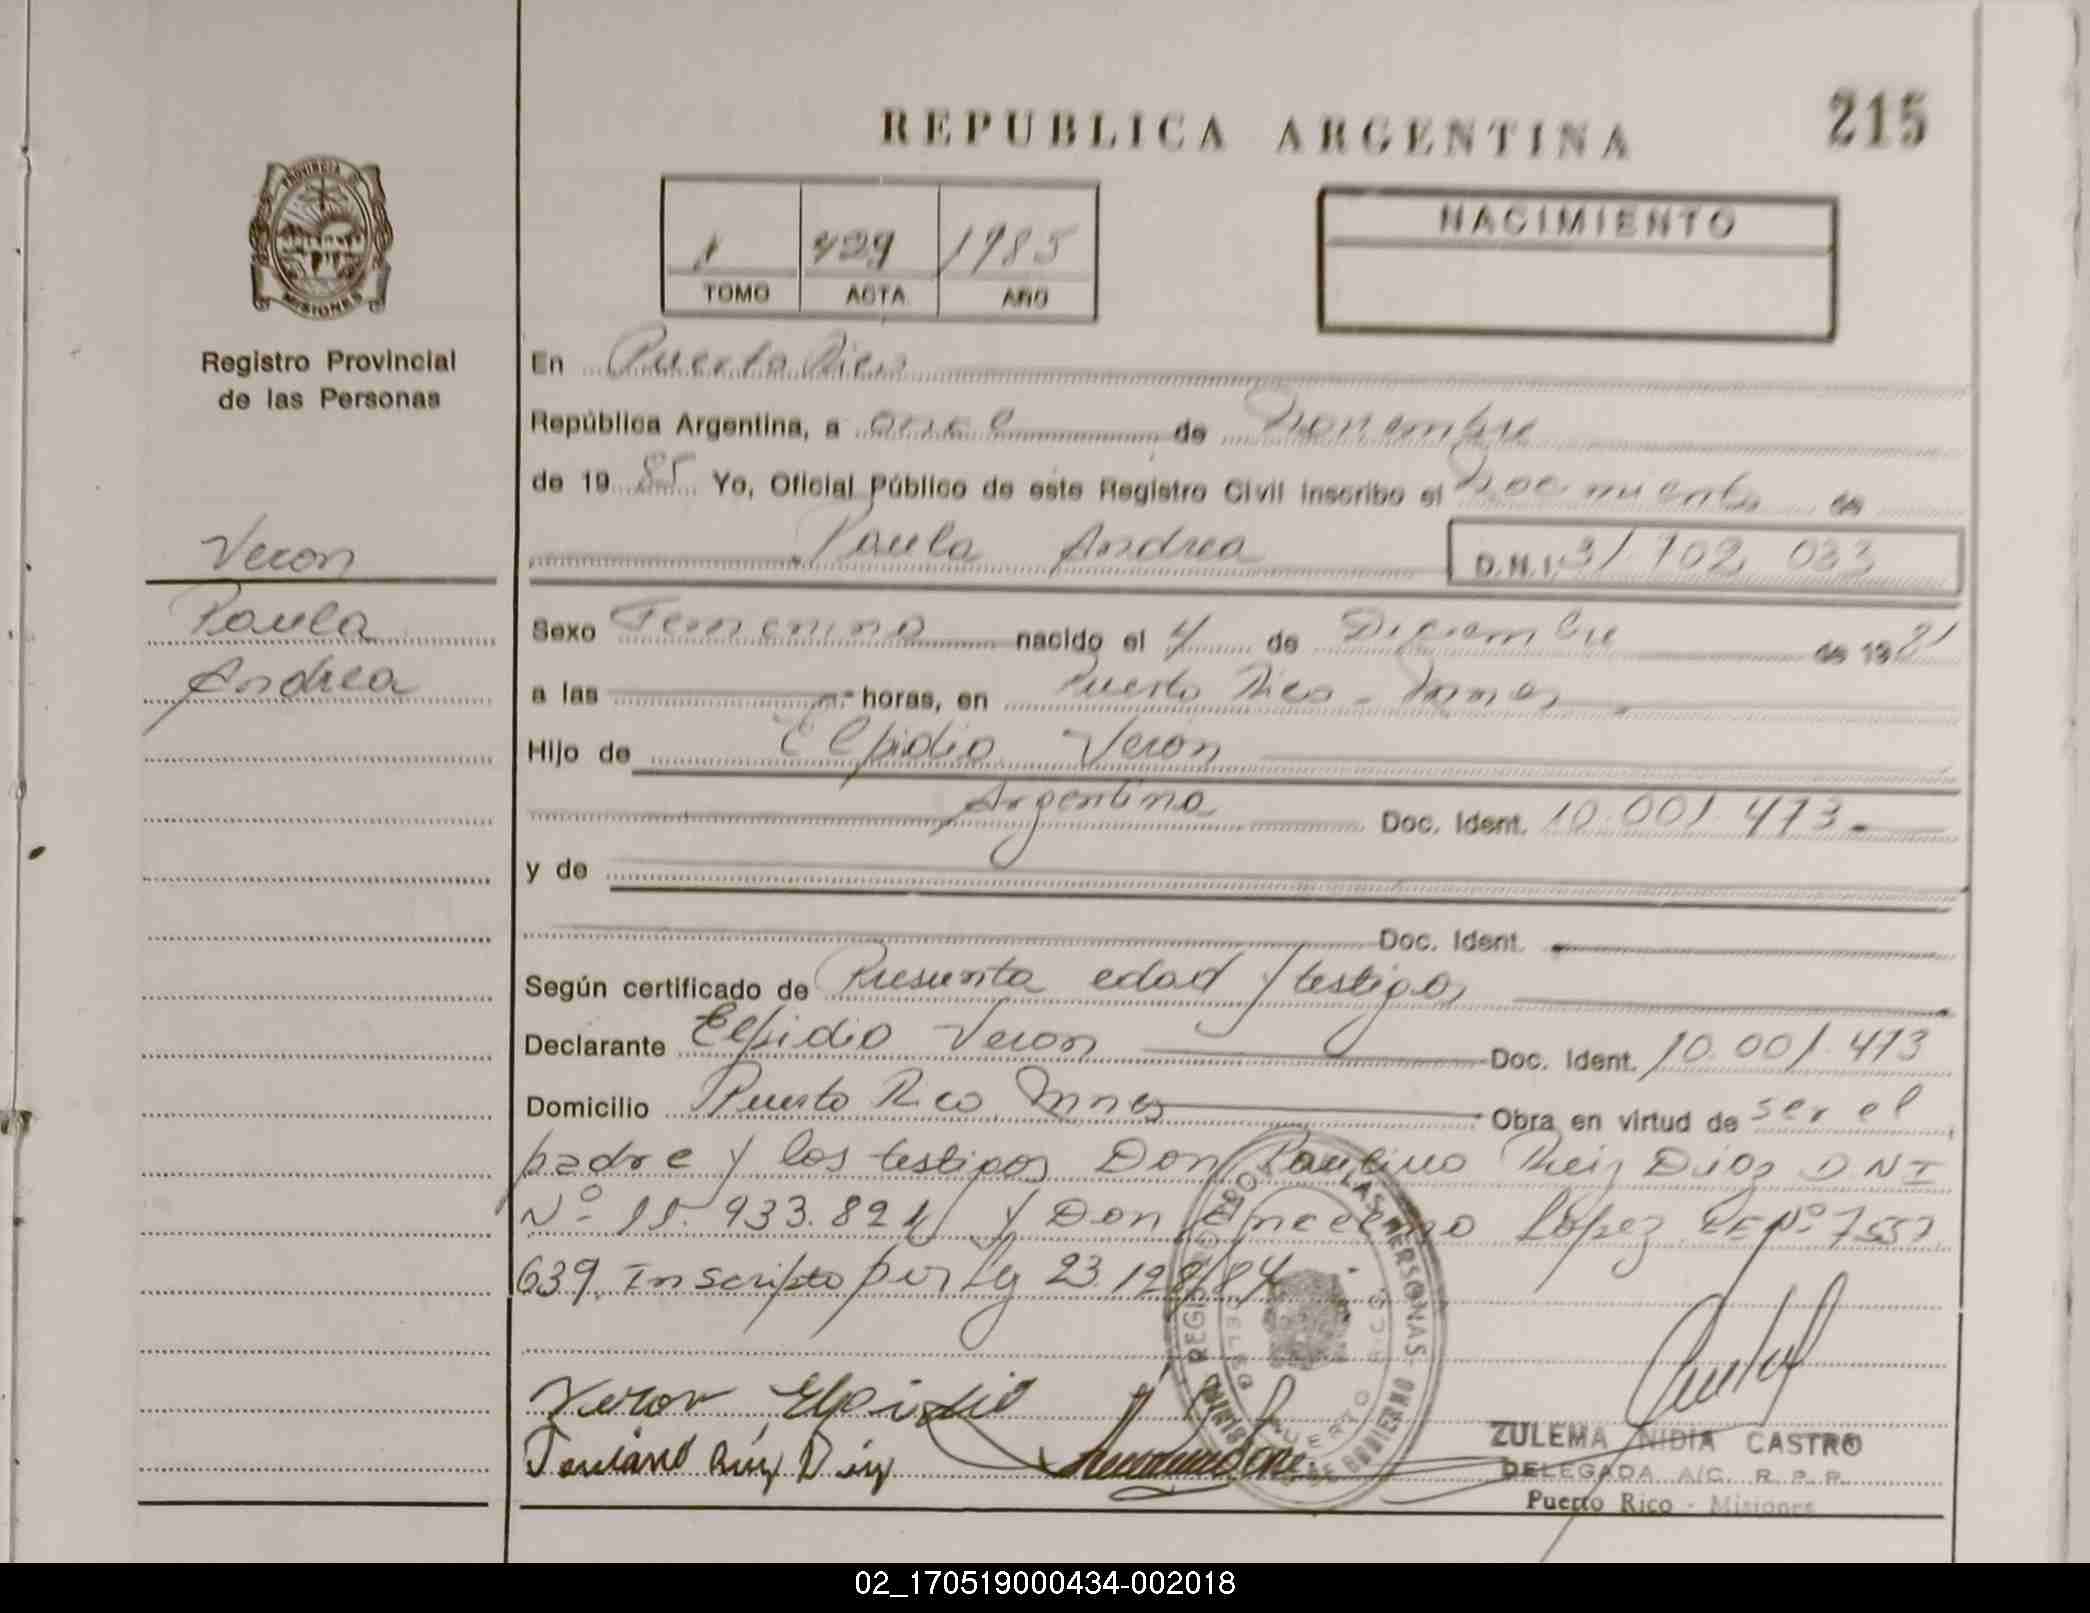 REPUBLICA ARGENTINA
215
PROVINCIA DE
MISIONES
Registro Provincial
de las Personas
1 429 1985
TOMO ACTA AÑO
NACIMIENTO
En Puerto Rico
República Argentina, a once de Noviembre
de 19 85 Yo, Oficial Público de este Registro Civil inscribo el Nacimiento de
Veron
Paula Andrea
D.N.I. 31 702 033
Paula
Andrea
Sexo Femenino nacido el 4 de Diciembre de 19 81
a las horas, en Puerto Rico - Mnes
Hijo de Elpidio Veron
Argentino Doc. Ident. 10.001.473
y de
Doc. Ident.
Según certificado de Presunta edad y testigos
Declarante Elpidio Veron Doc. Ident. 10.001.473
Domicilio Puerto Rico Mnes Obra en virtud de ser el
padre y los testigos Don Paulino Ruiz Diaz D N I
Nº 11.933.821 y Don Ancelmo Lopez LE Nº 7557
639. Inscripto por Ley 23.128/84
REGISTRO LAS PERSONAS
PUERTO RICO
DE GOBIERNO
Veron Elpidio
Ruiz Diaz
ZULEMA NIDIA CASTRO
DELEGADA A/C. R. P. P.
Puerto Rico - Misiones
02_170519000434-002018